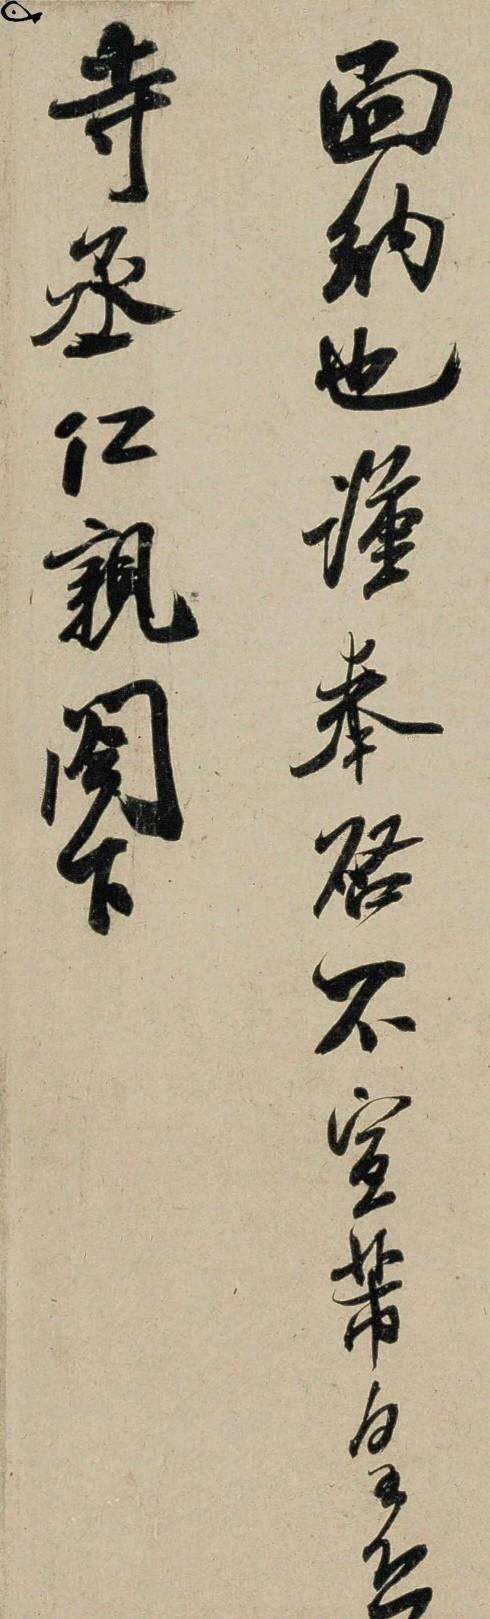 面納也謹奉啓不宣芾皇恐
寺丞仁親閣下